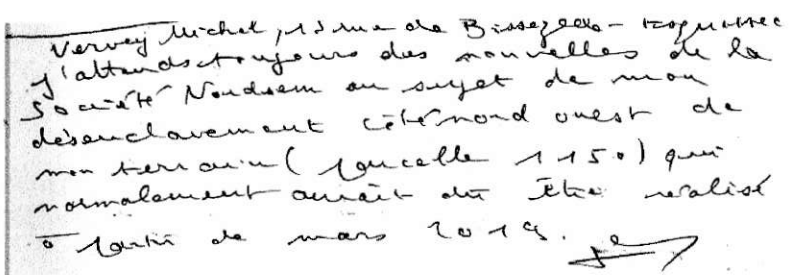 Vervey Michel, 13 rue de
J'attends toujours des nouvelles de la
Société Nordsem au sujet de mon
désenclavement côté nord ouest de
mon terrain (parcelle 1150) qui
normalement aurait dû être réalisé
à partir de mars 2019.